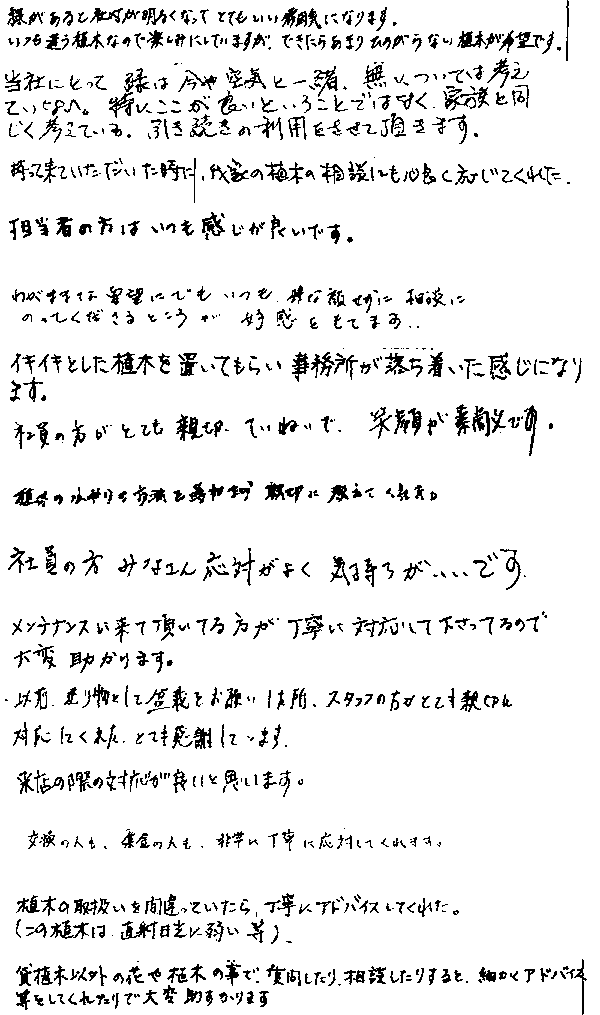 緑があると社内が明るくなって とてもいい雰囲気になります。
いつも違う植木なので楽しみにしていますが、できたらあまり ものがうない 植木が希望です。
当社にとって 緑は 今や空気と一緒、無については考え
ていません。特にここが良いということではなく、家族と同
じく考えている。引き続きの利用をさせて頂きます。
持って来ていただいた時に、我家の植木の相談にも心良く応じてくれた。
担当者の方はいつも感じが良いです。
わがままな要望にでも いつも 親切に 相談に
のってくださるところが 好感をもてます..
イキイキとした植木を置いてもらい 事務所が落ち着いた感じになり
ます。
社員の方がとても 親切 ていねいで、笑顔が素敵です。
植木の水やりの方法を 親切に 教えてくれた。
社員の方 みなさん 応対がよく 気持ちがいいです
メンテナンスに来て頂いてる方が 丁寧に 対応して下さってるので
大変 助かります。
・以前、送り物として盆栽をお願いした所、スタッフの方がとても親切に
対応してくれた、とても感謝しています。
来店の際の対応が良いと思います。
交換の人も、集金の人も、非常に丁寧に応対してくれます。
植木の取扱いを間違っていたら、丁寧にアドバイスしてくれた。
(この植木は 直射日光に弱い 等)
貸植木以外の花や植木の事で、質問したり、相談したりすると、細かくアドバイス
等をしてくれたりで大変助かります